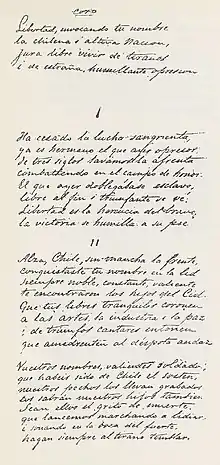 coro
Libertad, invocando tu nombre
la chilena i altiva Nacion,
jura libre vivir de tiranos
i de estraña, humillante opresion
I
Ha cesado la lucha sangrienta,
ya es hermano el que ayer opresor;
de tres siglos lavamos la afrenta
combatiendo en el campo de honor.
El que ayer doblegábase esclavo,
libre al fin i triunfante se ve;
Libertad es la herencia del bravo,
la victoria se humilla a su pié.
II
Alza, Chile, sin mancha la frente,
conquistaste tu nombre en la lid
siempre noble, constante, valiente
te encontraron los hijos del Cid.
Que tus libres tranquilos coronen
a las artes, la industria i la paz
i de triunfos cantares entonen
que amedrenten al déspota audaz
Vuestros nombres, valientes soldados,
que habeis sido de Chile el sosten,
nuestros pechos los llevan grabados
los sabrán nuestros hijos tambien.
Sean ellos el grito de muerte,
que lancemos marchando a lidiar,
i sonando en la boca del fuerte,
hagan siempre al tirano temblar.